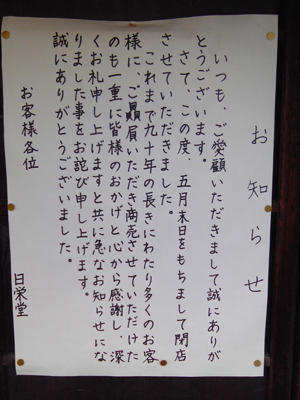 お知らせ
いつも、ご愛顧いただきまして誠にありが
とうございます。
さて、この度、五月末日をもちまして閉店
させていただきました。
これまで九十年の長きにわたり多くのお客
様に、ご贔屓いただき商売させていただけた
のも一重に皆様のおかげと心から感謝し、深
くお礼申し上げますと共に急なお知らせにな
りました事をお詫び申し上げます。
誠にありがとうございました。
お客様各位
日栄堂